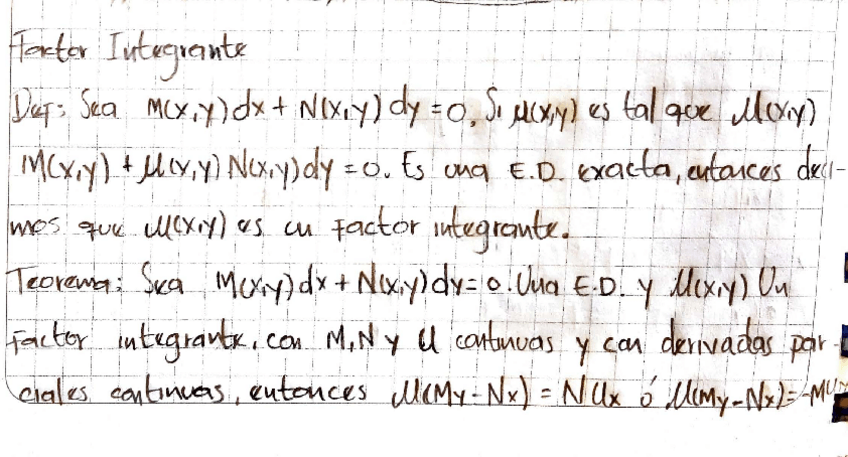 Factor Integrante
Def: Sea M(x,y)dx + N(x,y)dy = 0. Si μ(x,y) es tal que μ(x,y)
M(x,y) + μ(x,y) N(x,y)dy = 0. Es una E.D. exacta, entonces deci-
mos que μ(x,y) es un factor integrante.
Teorema: Sea M(x,y)dx + N(x,y)dy = 0. Una E.D. y μ(x,y) Un
factor integrante, con M, N y μ continuas y con derivadas par-
ciales continuas, entonces μ(My - Nx) = Nμx ó μ(My - Nx) = -Mμ